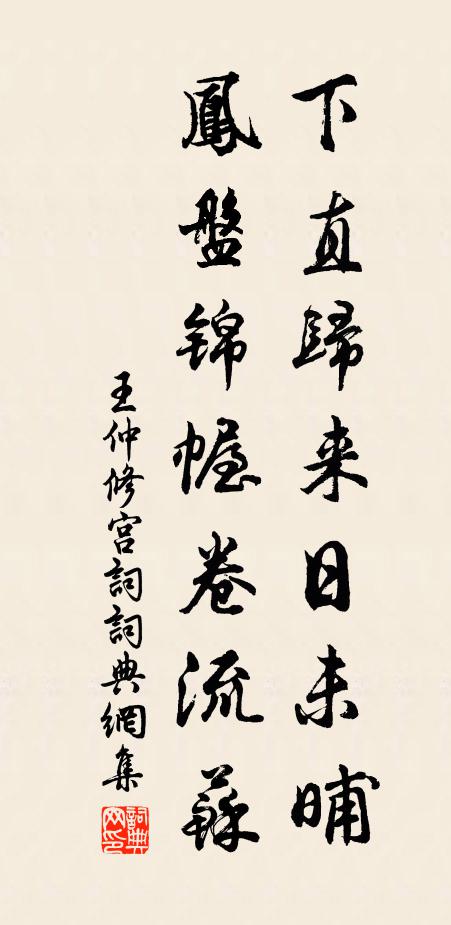 下直歸来日未晡
鳳盤錦幄卷流蘇
王仲修宮詞詞典網集
詞典网印